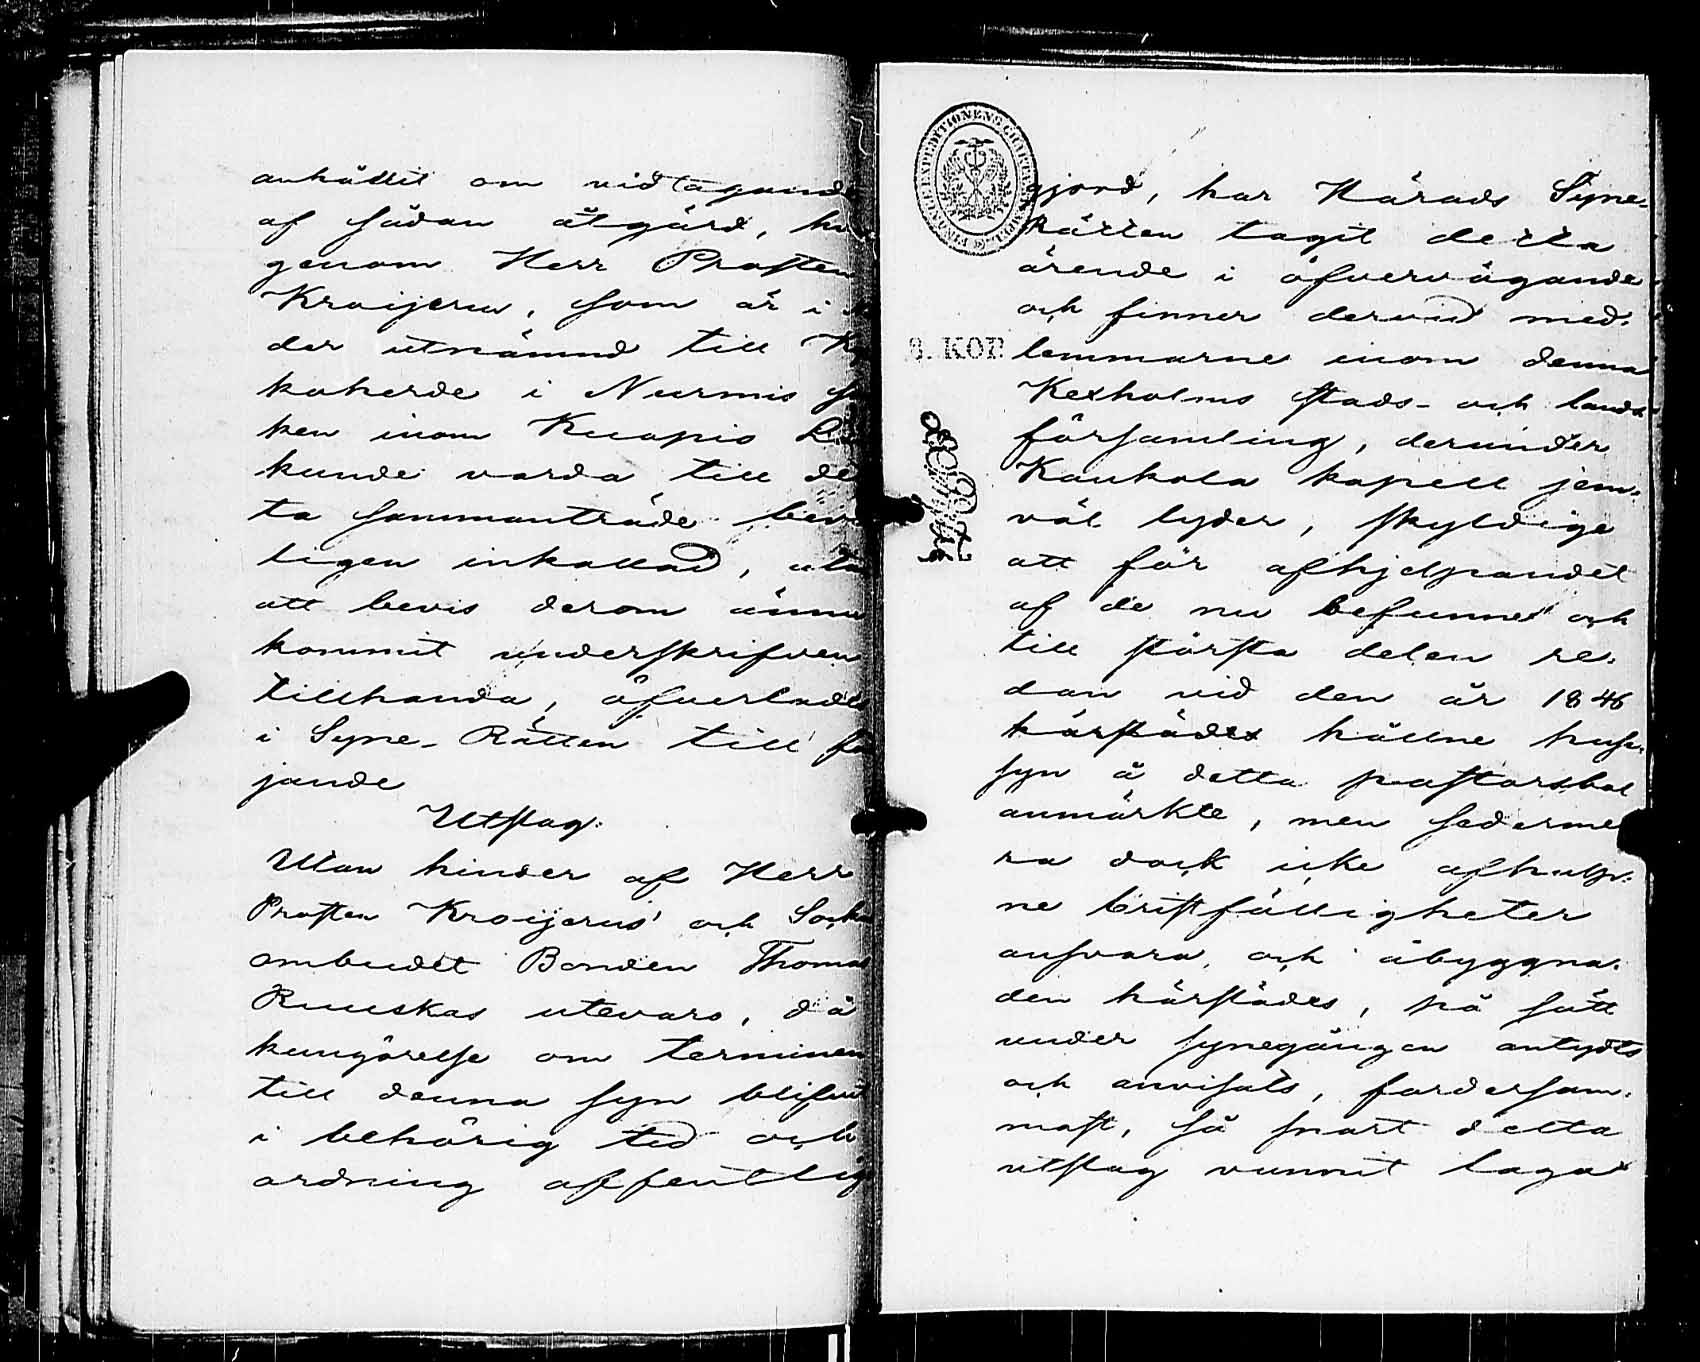 anhållit om vidtagande
af sådan åtgärd, hv
genom Herr Prosten
Kroijerus, som är i
der utnämnd till Ky
koherde i Nurmis So
ken inom Kuopio Lä
kunde varda till det
ta sammanträde bevi
ligen inkallad, utan
att bevis derom ännu
kommit underskrifven
tillhanda, öfverlades
i Syne-Rätten till föl
jande
Utslag.
Utan hinder af Herr
Prosten Kroijerus och Socke
ombudet Bonden Thomas
Ruuskas utevaro, då
kungörelse om terminen
till denna syn blifvit
i behörig tid och
ordning offentlig
gjord, har Härads Syne-
Rätten tagit detta
ärende i öfvervägande
och finner dervid med-
lemmarne inom denna
Kexholms stads- och lands
församling, derunder
Kaukola kapell jem-
väl lyder, skyldige
att för afhjelpandet
af de nu befunne och
till största delen re-
dan vid den år 1846
härstädes hållne huse-
syn å detta pastorsbol
anmärkte, men sederme
ra dock icke afhulp-
ne bristfälligheter
ansvara, och åbyggna-
den härstädes, på sätt
under synegången antydts
och anvisats, fordersam-
mast, så snart detta
utslag vunnit laga
3. KOP.